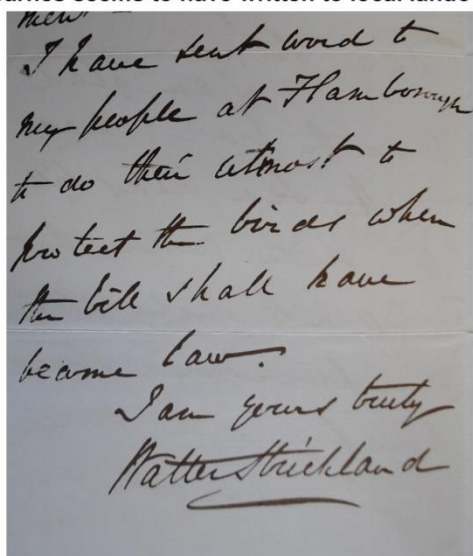 I have sent word to
my people at Flamborough
to do their utmost to
protect the birds when
the bill shall have
become law.
I am yours truly
Walter Strickland